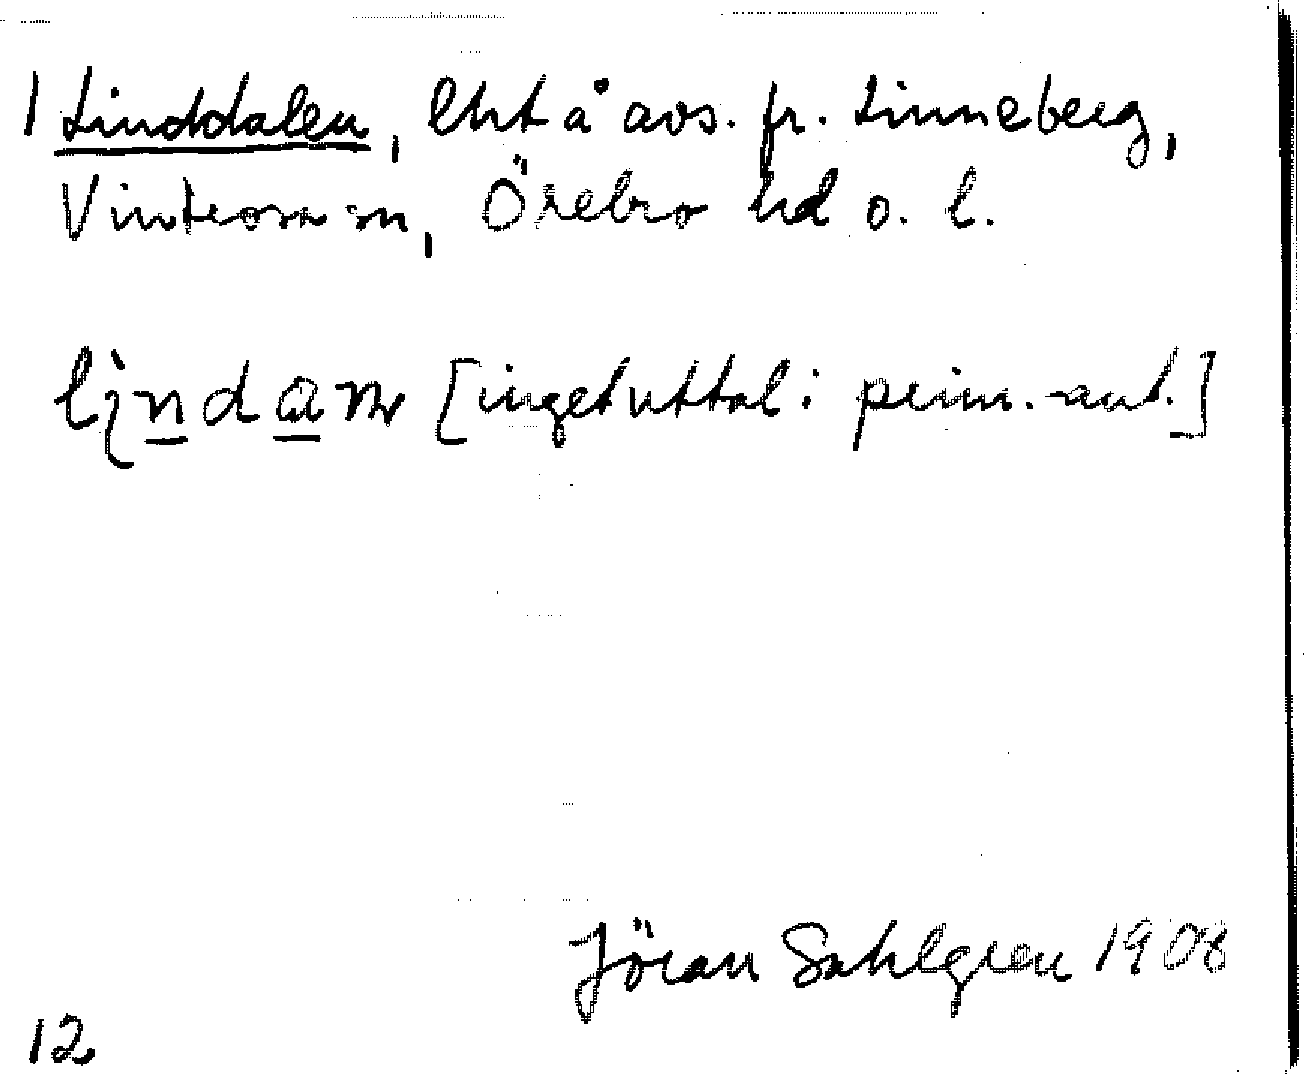 1 Linddalen, lht å avs. fr. Linneberg,
Vintrosa sn, Örebro hd o. l.
[inget uttal i prim.-ant.]
Jöran Sahlgren 1908
12